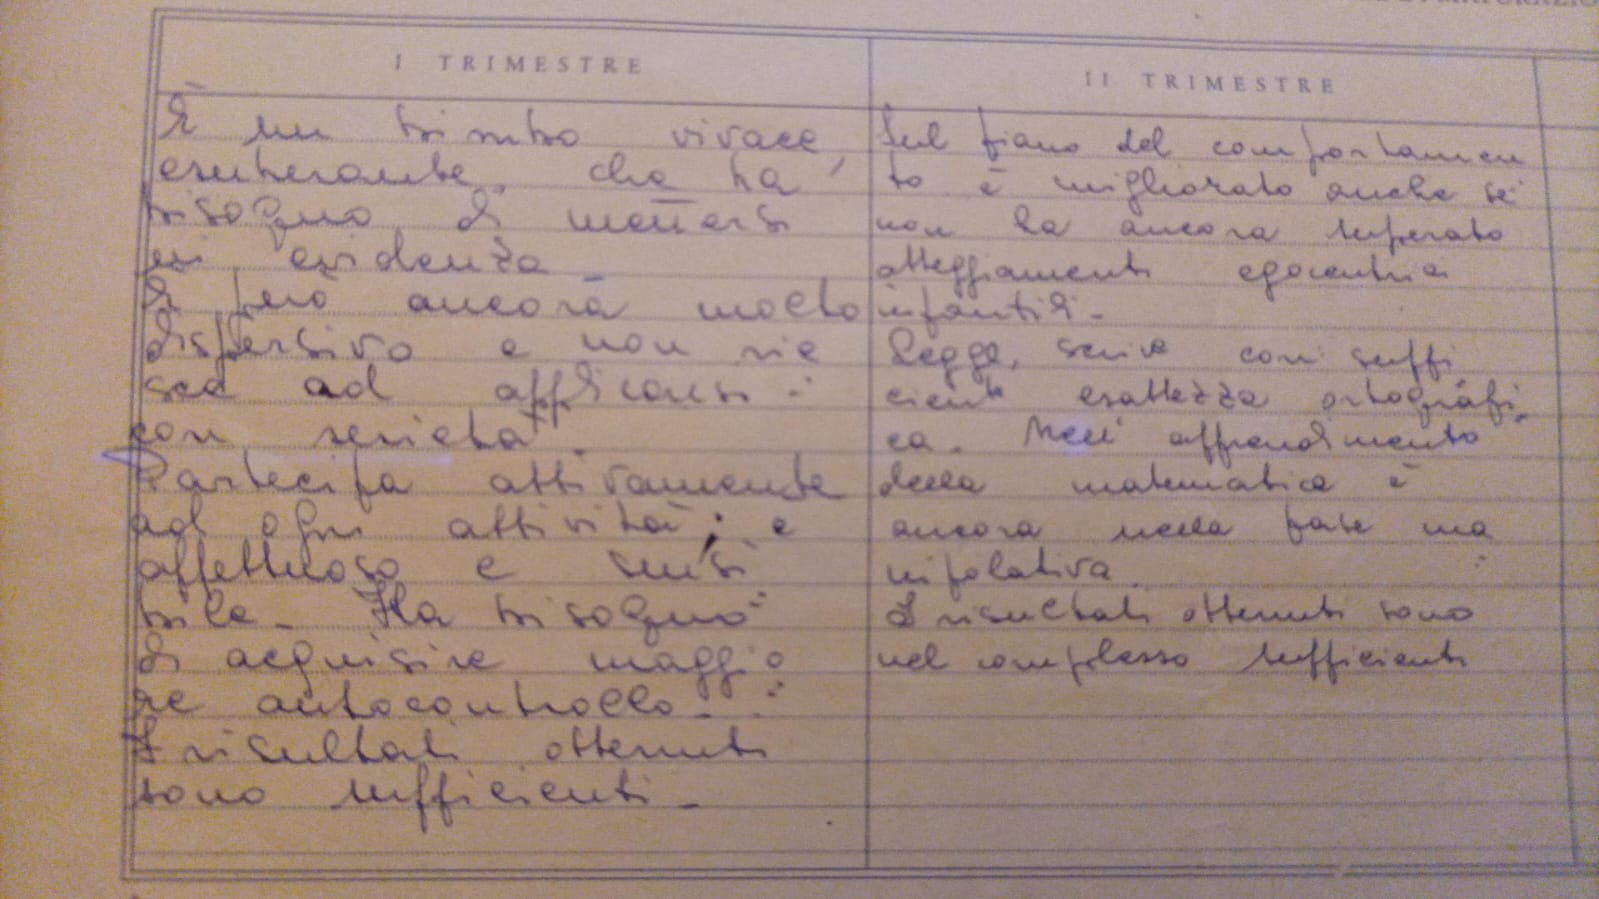 I TRIMESTRE
È un bimbo vivace,
esuberante, che ha
bisogno di mettersi
in evidenza.
È però ancora molto
dispersivo e non rie
sce ad applicarsi
con serietà.
Partecipa attivamente
ad ogni attività; è
affettuoso e sensi
bile. Ha bisogno
di acquisire maggio
re autocontrollo.
I risultati ottenuti
sono sufficienti.
II TRIMESTRE
Sul piano del comportamen
to è migliorato anche se
non ha ancora superato
atteggiamenti egocentrici
infantili.
Legge, scrive con suffi
ciente esattezza ortografi
ca. Nell'apprendimento
della matematica è
ancora nella fase ma
nipolativa.
I risultati ottenuti sono
nel complesso sufficienti